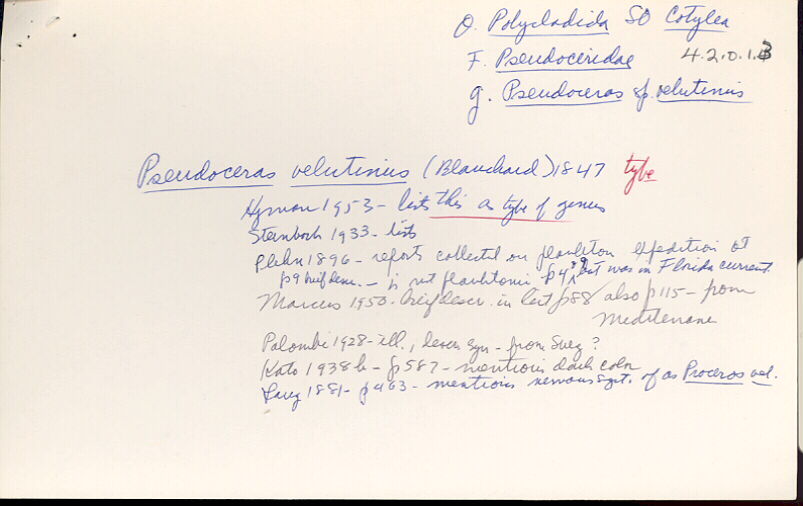 O. Polycladida SO Cotylea
F. Pseudoceridae 4.2.0.1.3
g. Pseudoceras sp. velutinus
Pseudoceras velutinus (Blanchard) 1847 type
Hyman 1953 - lists this as type of genus
Steinboch 1933 - lists
Plehn 1896 - reports collected on plankton expedition at
p9 brief descr. - is not planktonic p4 but was in Florida current.
Marcus 1950 - brief descr. in list p88 / also p115 - from
Mediterrane
Palombi 1928 - ill., descr syn - from Suez ?
Kato 1938b - p587 - mentions dark color
Lang 1881 - p463 - mentions nervous syst. of as Proceros vel.